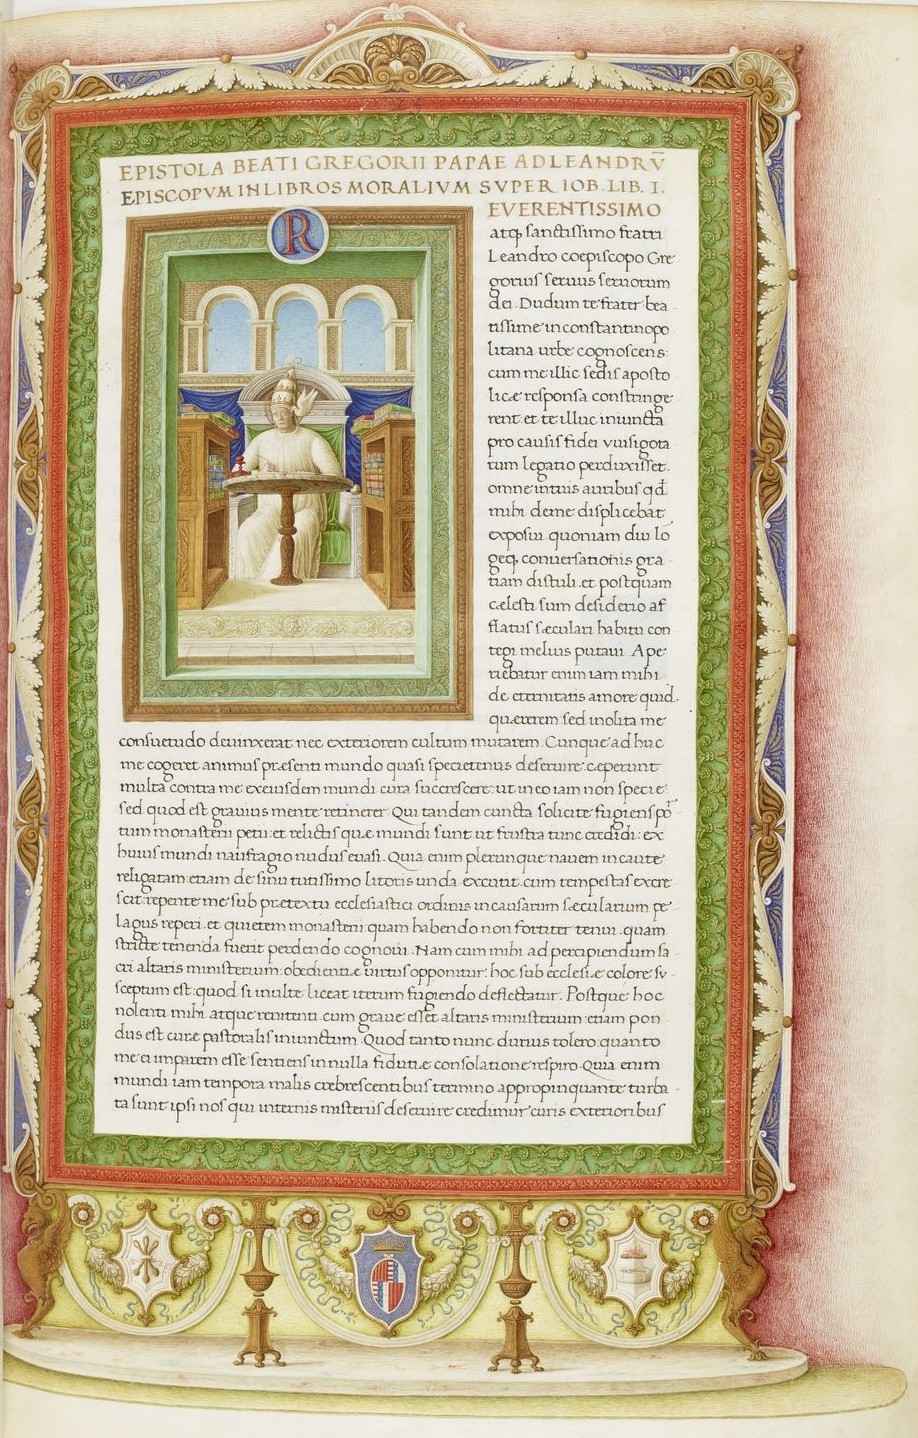 EPISTOLA BEATI GREGORII PAPAE AD LEANDRV̄
EPISCOPVM IN LIBROS MORALIVM SVPER IOB. LIB. I.
R
EVERENTISSIMO
atq; sanctissimo fratri
Leandro coepiscopo Gre
gorius seruus seruorum
dei. Dudum te frater bea
tissime in constantinopo
litana urbe cognoscens:
cum me illic sedis aposto
licæ responsa constringe
rent. et te illuc iniuncta
pro causis fidei vuisigota
rum legatio perduxisset.
omne in tuis auribus qd̄
mihi de me displicebat
exposui. quoniam diu lō
geq; conuersationis gra
tiam distuli. et postquam
cælesti sum desiderio af
flatus sæculari habitu con
tegi melius putaui. Ape
riebatur enim iam mihi
de eternitatis amore quid
quærerem sed inolita me
consuetudo deuinxerat: nec exteriorem cultum mutarem. Cunque adhuc
me cogeret animus præsenti mundo quasi specietenus deseruire: cæperunt
multa contra me ex eiusdem mundi cura succrescere: ut in eo iam non specie:
sed quod est grauius mente retinerer. Qui tandem cuncta solicite fugiens por
tum monasterii petii: et relictis quæ mundi sunt ut frustra tunc credidi: ex
huius mundi naufragio nudus euasi. Quia enim plerunque nauem incaute
religatam etiam de sinu tutissimo litoris unda excutit. cum tempestas excre
scit: repente me sub prætextu ecclesiastici ordinis in causarum sæcularium pe
lagus reperi. et quietem monasterii: quam habendo non fortiter tenui. quam
stricte tenenda fuerit perdendo cognoui. Nam cum mihi ad percipiendum sa
cri altaris ministerium: obedientiæ uirtus opponitur: hoc sub ecclesiæ colore su
sceptum est: quod si inulte liceat iterum fugiendo deflectatur. Postque hoc
nolenti mihi atque renitenti. cum graue esset altaris ministerium: etiam pon
dus est curæ pastoralis iniunctum. Quod tanto nunc durius tolero: quanto
me ei imparem esse sentiens in nulla fidutiæ consolatione respiro. Quia enim
mundi iam tempora malis crebrescentibus termino appropinquante turba
ta sunt: ipsi nos qui internis misteriis deseruire credimur curis exterioribus